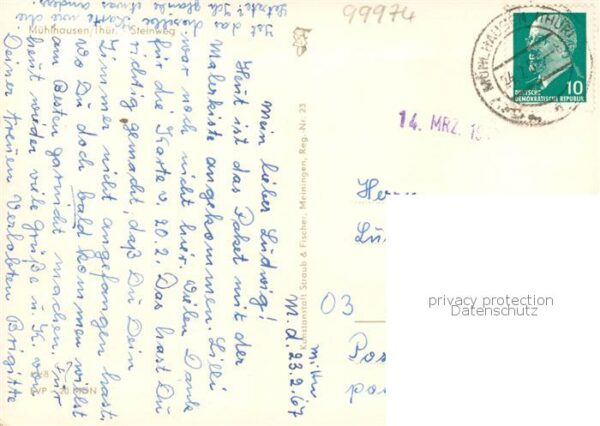 99974
Mühlhausen/Thür. Steinweg
Ist das
dieselbe Karte wie die
Mein lieber Ludwig!
Heut ist das Paket mit der
Malerkiste angekommen. Lilli
war noch nicht hier. Vielen Dank
für die Karte v. 20.2. Das hast Du
richtig gemacht, daß Du Dein
Zimmer nicht angefangen hast,
wo Du doch bald kommen willst
am Besten garnicht machen. Für
heut wieder viele Grüße u. K. von
Deiner treuen Verlobten Brigitte
M. d. 23.2.67
Kunstanstalt Straub & Fischer, Meiningen, Reg.-Nr. 23
EVP -.20 MDN
MÜHLHAUSEN (THÜR)
DEUTSCHE
DEMOKRATISCHE REPUBLIK
10
14. MRZ. 19
Herrn
03
privacy protection
Datenschutz